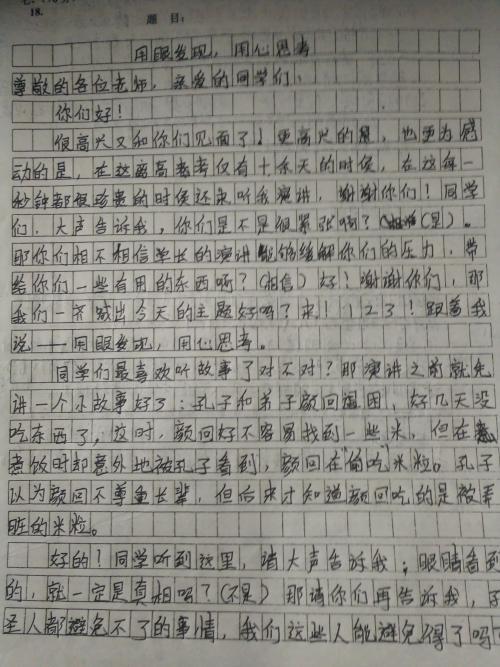 18.
题 目：
用眼发现，用心思考
尊敬的各位老师，亲爱的同学们：
你们好！
很高兴又和你们见面了！更高兴的是，也更为感
动的是，在这离高考仅有十余天的时候，在这每一
秒钟都很珍贵的时候还来听我演讲，谢谢你们！同学
们，大声告诉我，你们是不是很紧张啊？（是）。
那你们相不相信学长的演讲能够缓解你们的压力，带
给你们一些有用的东西啊？（相信）好！谢谢你们，那
我们一齐喊出今天的主题好吗？来！1 2 3！跟着我
说——用眼发现，用心思考。
同学们最喜欢听故事了对不对？那演讲之前就先
讲一个小故事好了：孔子和弟子颜回遇困，好几天没
吃东西了，这时，颜回好不容易找到一些米，但在
煮饭时却意外地被孔子看到，颜回在"偷吃"米粒。孔子
以为颜回不尊重长辈，但后来才知道颜回吃的是被弄
脏的米粒。
好的！同学听到这里，请大声告诉我；眼睛看到
的，就一定是真相吗？（不是）那请你们再告诉我，
圣人都避免不了的事情，我们这些人能避免得了吗？